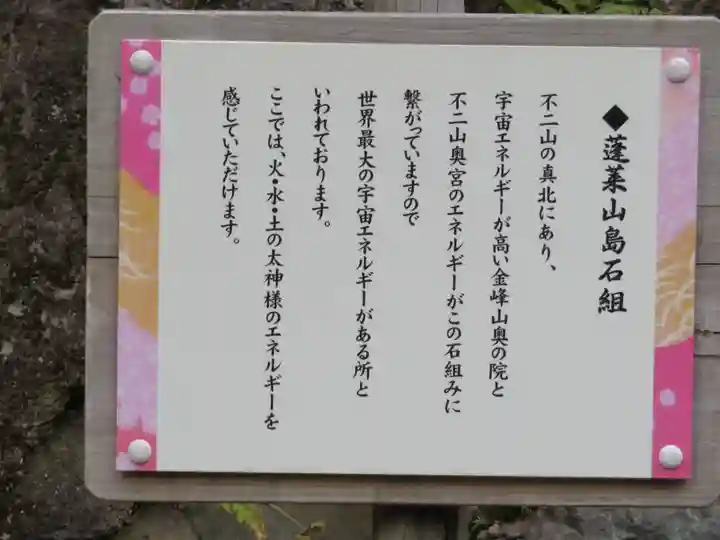 ◆蓬莱山島石組
不二山の真北にあり、
宇宙エネルギーが高い金峰山奥の院と
不二山奥宮のエネルギーがこの石組みに
繋がっていますので
世界最大の宇宙エネルギーがある所と
いわれております。
ここでは、火・水・土の太神様のエネルギーを
感じていただけます。